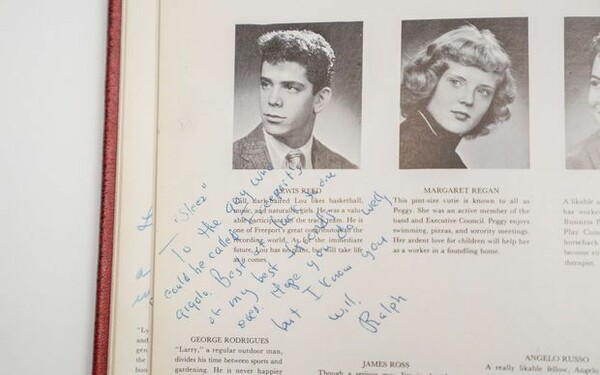 LEWIS REED
Tall, dark-haired Lou likes basketball,
music, and naturally, girls. He was a valu-
able participant on the track team. He is
one of Freeport's great contributors to the
recording world. As for the immediate
future, Lou has no plans, but will take life
as it comes.
MARGARET REGAN
This pint-size cutie is known to all as
Peggy. She was an active member of the
band and Executive Council. Peggy enjoys
swimming, pizzas, and sorority meetings.
Her ardent love for children will help her
as a worker in a foundling home.
A likable a
has worke
Business
Play Com
horseback
become
therapist.
To "Sleez"
To the guy who
could be called
gigolo. Best
of my best
over. Hope you do well,
but I know you
will.
Ralph
GEORGE RODRIGUES
"Larry," a regular outdoor man,
divides his time between sports and
gardening. He is never happier
JAMES ROSS
Though a serious
ANGELO RUSSO
A really likable fellow, Angelo